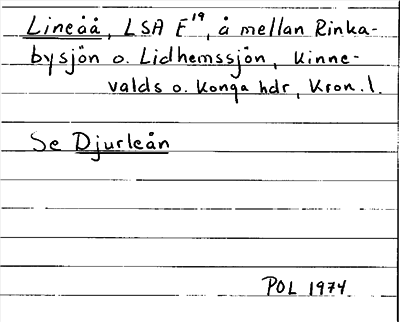 Lineåå, LSA E¹⁹, å mellan Rinka-
bysjön o. Lidhemssjön, Kinne-
valds o. Konga hdr, Kron. l.
Se Djurleån
POL 1974